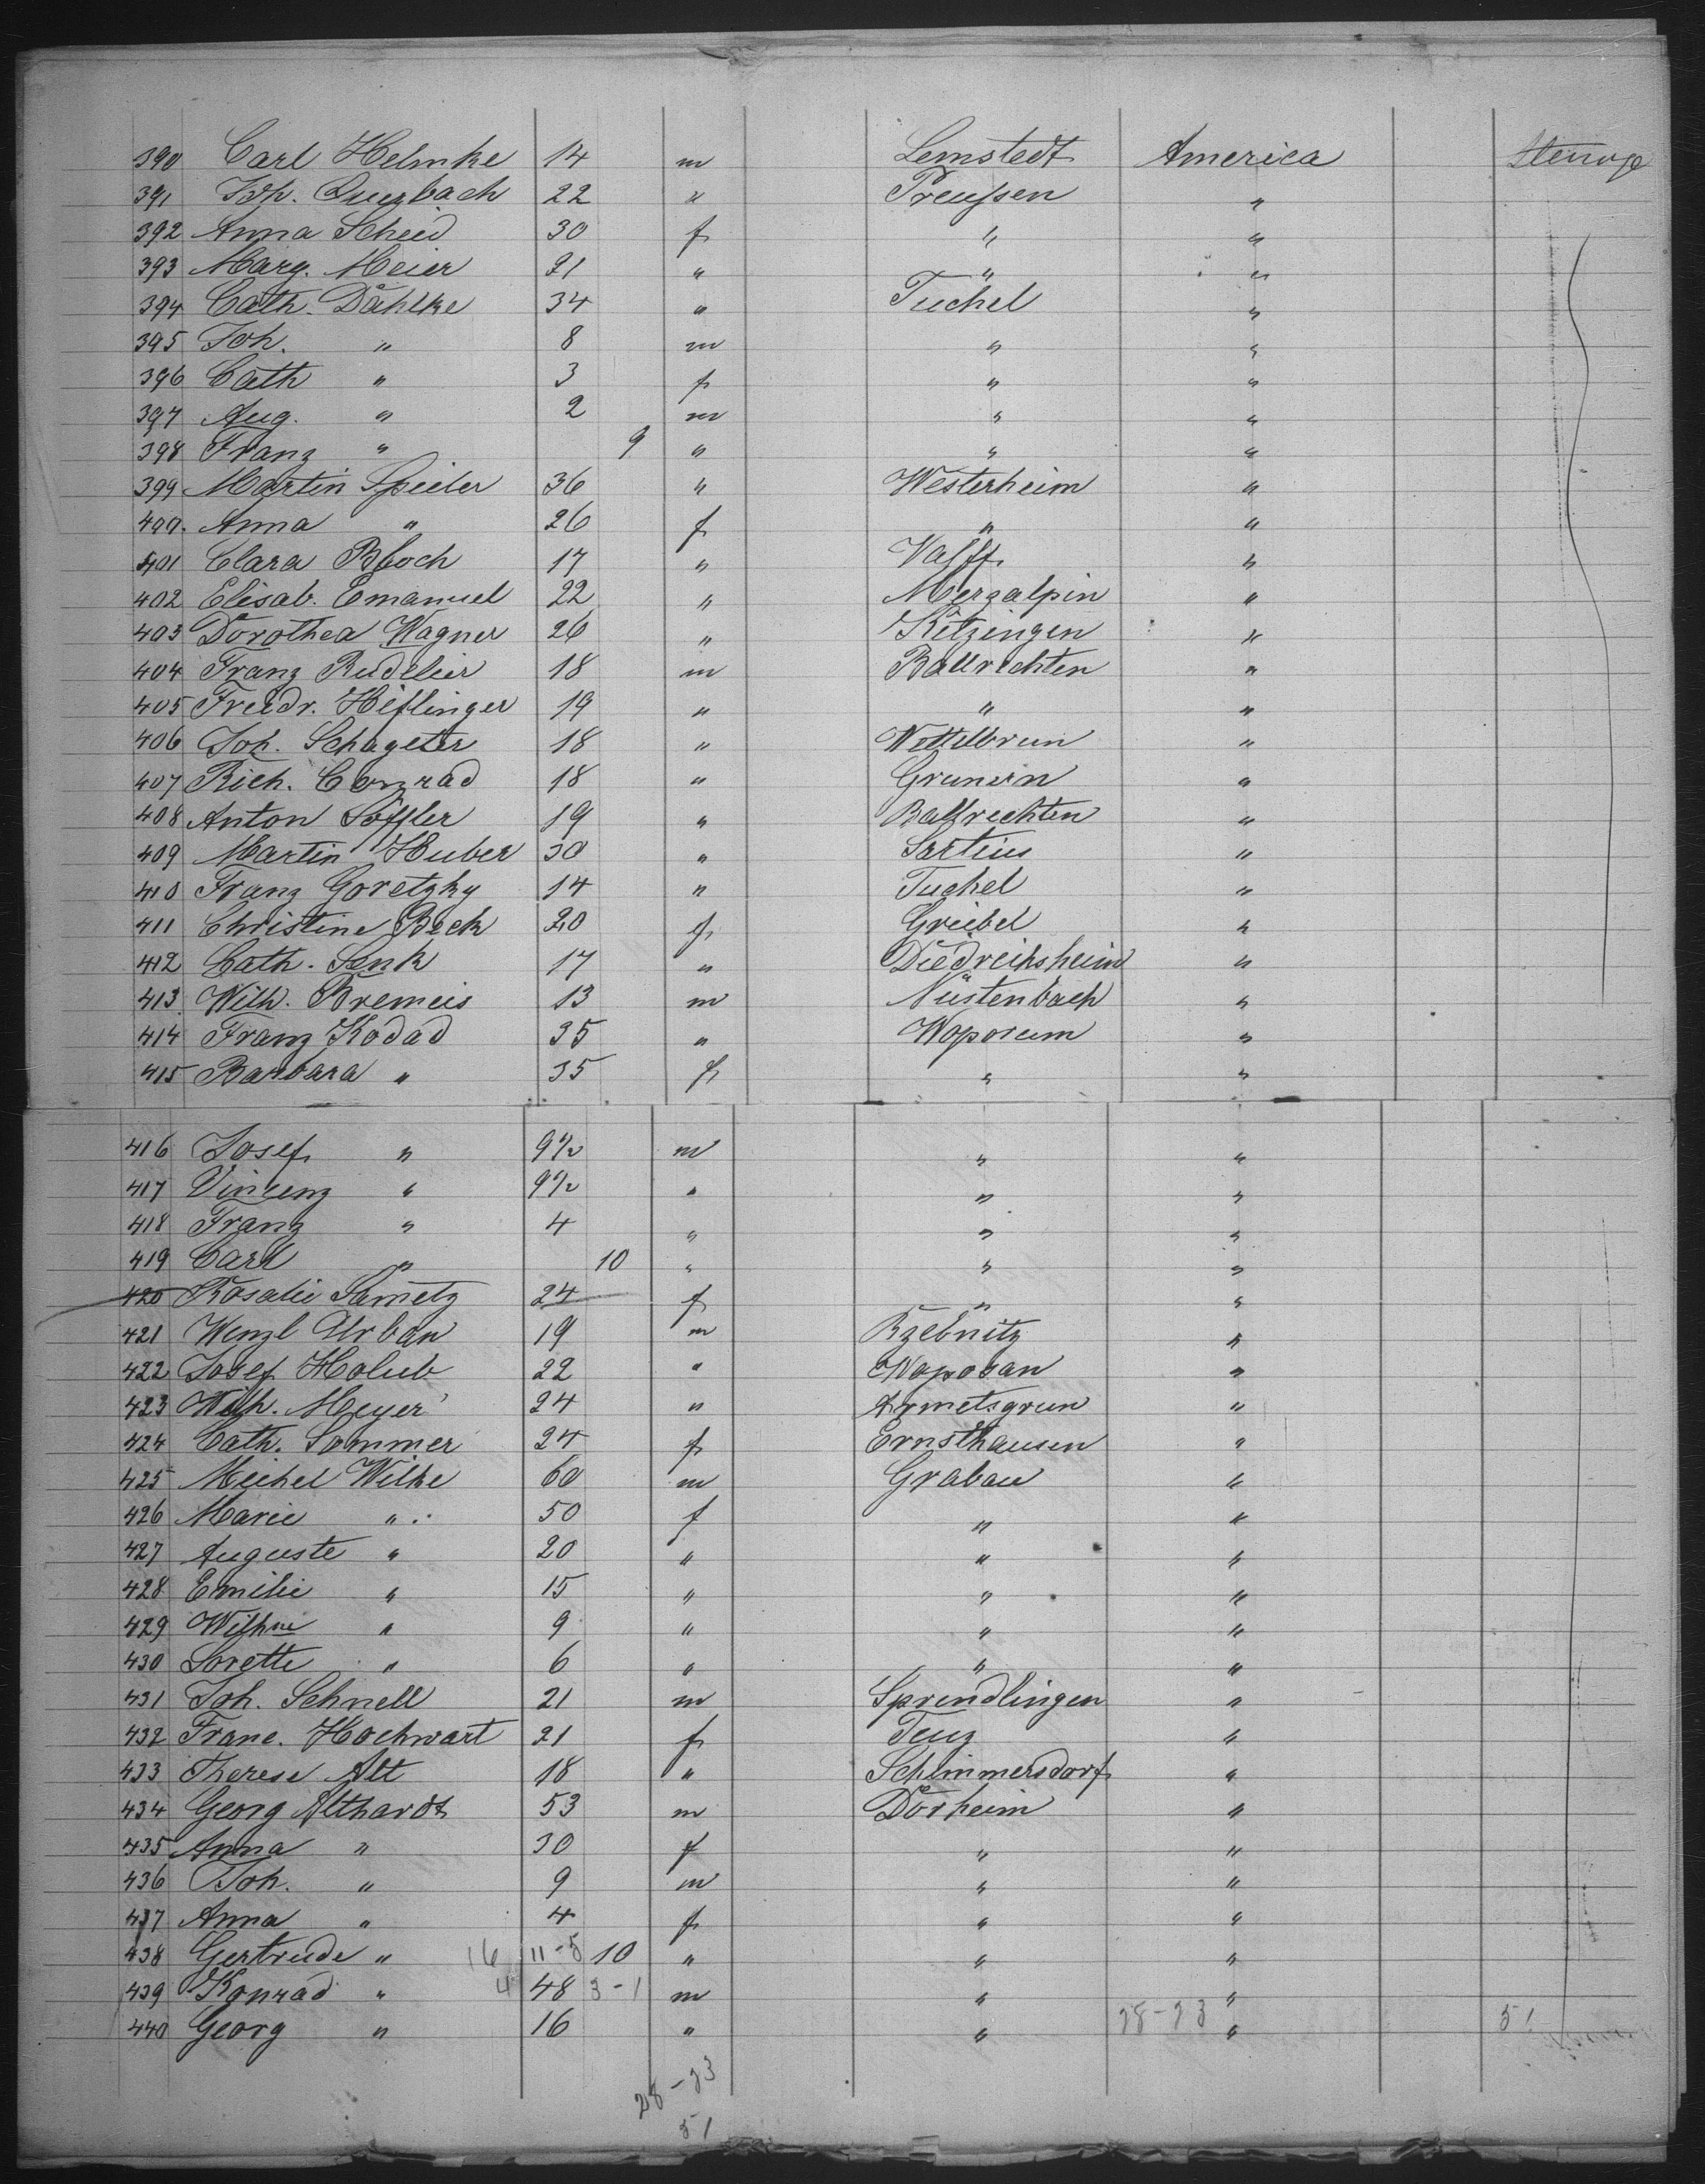 390 Carl Helmke 14 m Lemstedt America
391 Joh. Querbach 22 " Preussen "
392 Anna Scheid 30 f " "
393 Marg. Meier 21 " " "
394 Cath. Dahlke 34 " Tuchel "
395 Joh. " 8 m " "
396 Cath " 3 f " "
397 Aug. " 2 m " "
398 Franz " 9 " " "
399 Martin Speiler 36 " Westerheim "
400. Anna " 26 f " "
401 Clara Bloch 17 " Valff "
402 Elisab. Emanuel 22 " Merzalpin "
403 Dorothea Wagner 26 " Kitzingen "
404 Franz Rudelier 18 m Ballrechten "
405 Friedr. Hiflinger 19 " " "
406 Joh. Schageter 18 " Wettelbrun "
407 Rich. Conrad 18 " Grunern "
408 Anton Löffler 19 " Ballrechten "
409 Martin Huber 30 " "
410 Franz Goretzky 14 " Tuchel "
411 Christine Beck 20 f Griebel "
412 Cath. Senk 17 " Diedreichsheim "
413 Wilh. Bremeis 13 m Nüstenbach "
414 Franz Kodad 35 " Woporum "
415 Barbara " 35 f " "
416 Josef " 9½ m " "
417 Vinzenz " 9½ " " "
418 Franz " 4 " " "
419 Carl " 10 " " "
420 Rosalie Sametz 24 f " "
421 Wenzl Urban 19 m Rzebnitz "
422 Josef Holub 22 " Woporan "
423 Wilh. Meyer 24 " Armetsgrun "
424 Cath. Sommer 24 f Ernsthausen "
425 Michel Wilke 60 m Grabau "
426 Marie " 50 f " "
427 Auguste " 20 " " "
428 Emilie " 15 " " "
429 Wilhne " 9 " " "
430 Lorette " 6 " " "
431 Joh. Schnell 21 m Sprendlingen "
432 Franc. Hochwart 21 f Teuz "
433 Therese Alt 18 " Schlimmersdorf "
434 Georg Althardt 53 m Dorheim "
435 Anna " 30 f " "
436 Joh. " 9 m " "
437 Anna " 4 f " "
438 Gertrude " 16 11-5 10 " " "
439 Konrad " 4 48 3-1 m " "
440 Georg " 16 " " 28-23 " 51
28-23
51